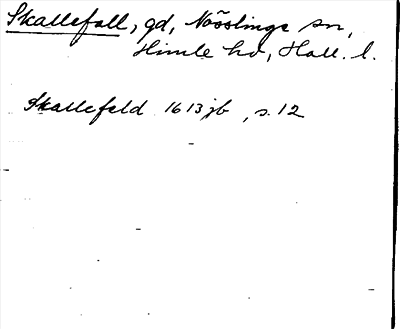 Skallefall, gd, Nösslinge sn,
Himle hd, Hall. l.
Skallefeld 1613 jb, s. 12